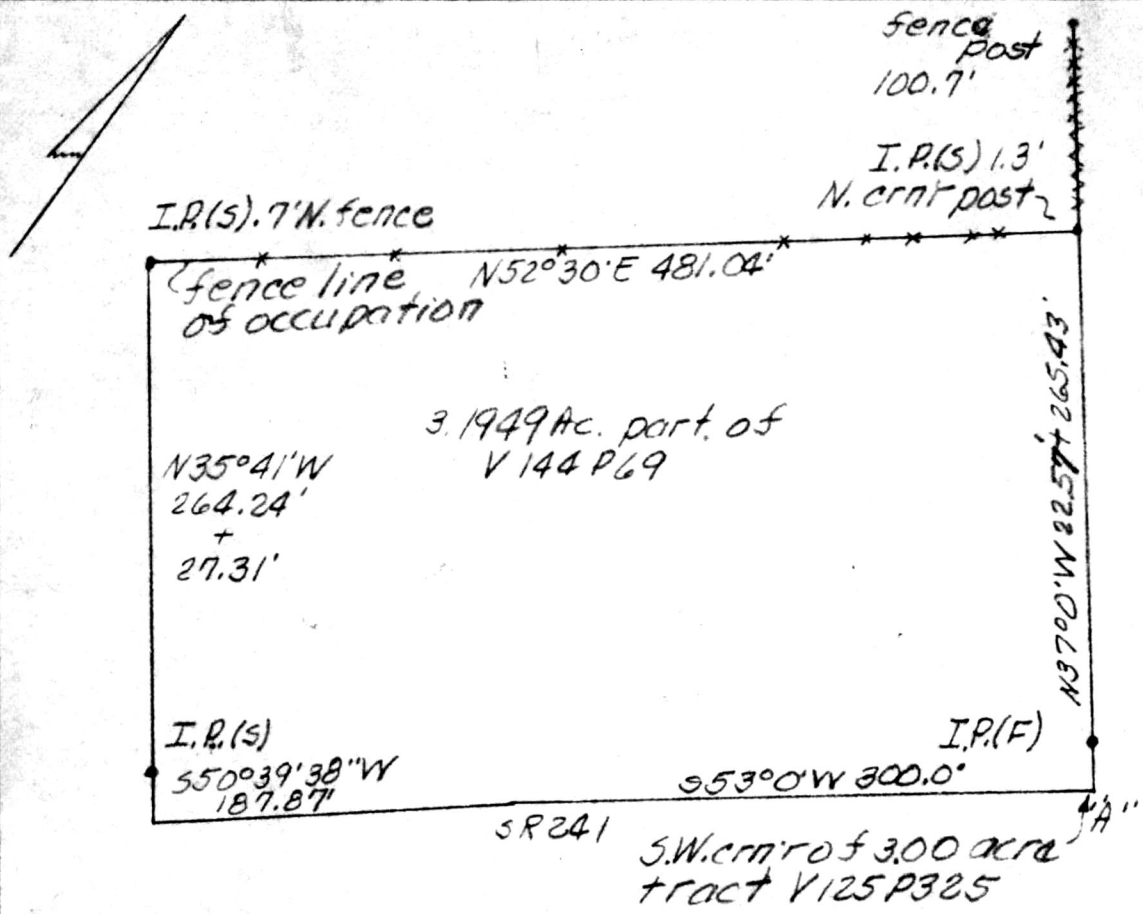 fence
post
100.7'
I.P.(S) 1.3'
N. crnr post
I.P.(S) .7'N. fence
fence line
of occupation
N52°30'E 481.04'
3.1949 Ac. part. of
V 144 P69
N35°41'W
264.24'
+
27.31'
N37°0'W 22.57'+ 265.43'
I.P.(S)
S50°39'38"W
187.87'
I.P.(F)
S53°0'W 300.0'
SR241
"A"
S.W. crn'r of 3.00 acre
tract V125 P325